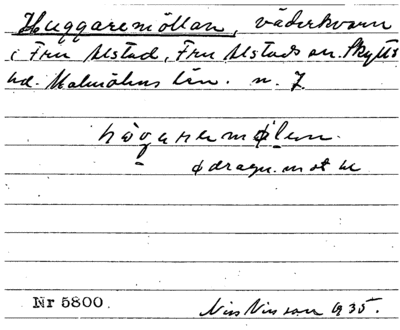 Huggaremöllan, väderkvarn
i Fru Alstad, Fru Alstads sn. Skytts
hd. Malmöhus län. n. 7
högaremølen.
ø dragn. mot
Nr 5800. Nils Nilsson 1935.